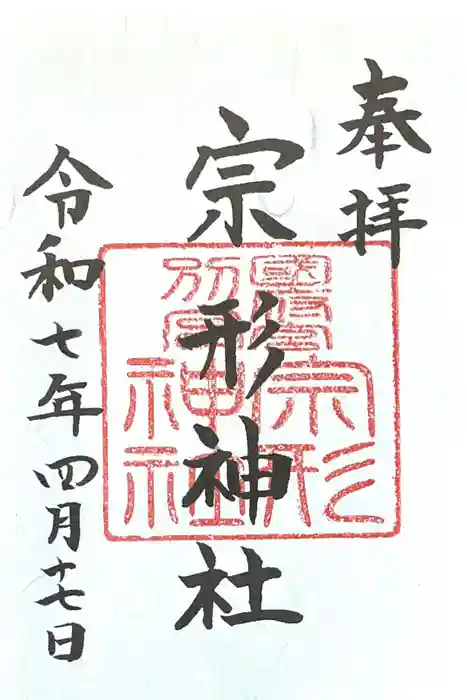 奉拝
宗形神社
宗形
神社
令和七年四月十七日